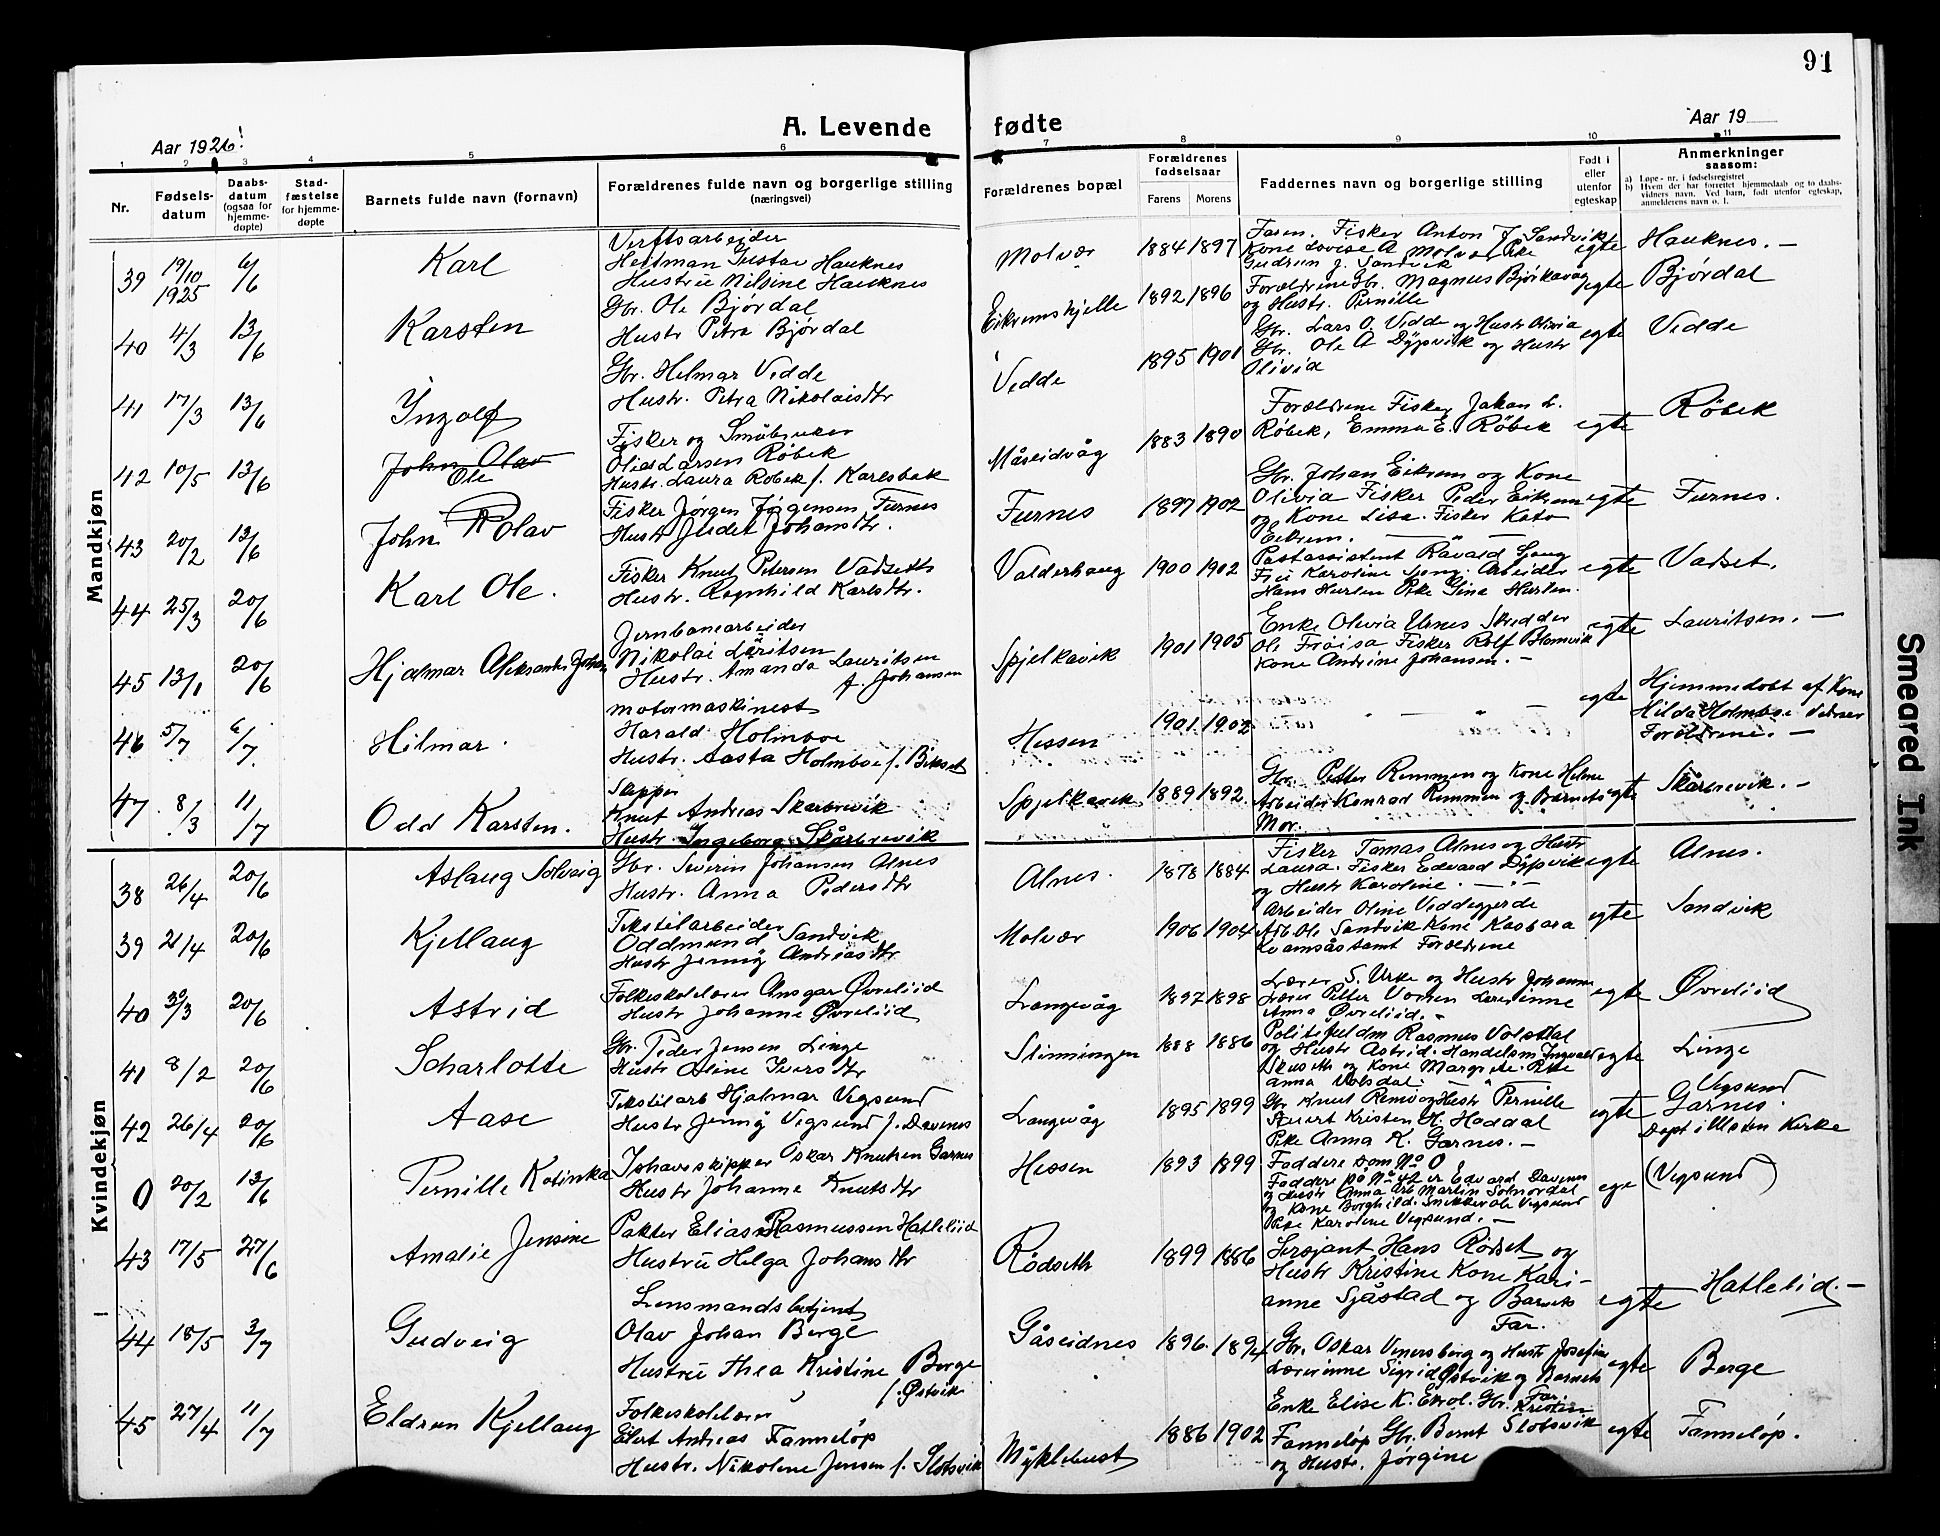 91
A. Levende fødte
Aar 1926!
Aar 19
1 2 3 4 5 6 7 8 9 10 11
Nr.
Fødsels-
datum
Daabs-
datum
(ogsaa for
hjemme-
døpte)
Stad-
fæstelse
for hjemme-
døpte
Barnets fulde navn (fornavn)
Forældrenes fulde navn og borgerlige stilling
(næringsvei)
Forældrenes bopæl
Forældrenes
fødselsaar
Farens Morens
Faddernes navn og borgerlige stilling
Født i
eller
utenfor
egteskap
Anmerkninger
saasom:
a) Løpe-nr. i fødselsregistret
b) Hvem der har forrettet hjemmedaab og to daabs-
vidners navn. Ved barn, født utenfor egteskap,
anmelderens navn o. l.
Mandkjøn
39 19/10 1925 6/6 Karl
Verftsarbeider
Hertman Gustav Hauknes
Hustru Nilsine Hauknes
Molvær 1884 1897
Faren. Fisker Anton J. Sandvik
Kone Lovise A Molvær Pike
Gudrun J. Sandvik
egte Hauknes. —
40 4/3 13/6 Karsten
Gbr. Ole Bjørdal
Hustr Petra Bjørdal
Eikremshjelle 1892 1896
Forældrene Gbr. Magnus Bjørkavåg
og Hustr. Pernille
egte Bjørdal
41 17/3 13/6 Ingolf
Gbr. Helmar Vedde
Hustr. Petra Nikolaisdtr
Vedde 1895 1901
Gbr. Lars O. Vedde og Hustr Olivia
Gbr. Ole A Dypvik og Hustr
Olivia
egte Vedde
42 10/5 13/6 John Olav
Ole
Fisker og Småbruker
Olias Larsen Røbek
Hustr. Laura Røbek f. Karlsbak
Måseidvåg 1883 1890
Forældrene Fisker Johan L.
Røbek, Emma E. Røbek
egte Røbek
43 20/2 13/6 John Olav
Fisker Jørgen Jørgensen Furnes
Hustr Judit Johansdtr.
Furnes 1897 1902
Gbr. Johan Eikrem og Kone
Olivia Fisker Peder Eikrem
og Kone Lisa. Fisker Kato
Eikrem. —
egte Furnes.
44 25/3 20/6 Karl Ole.
Fisker Knut Petersen Vadseth
Hustr. Ragnhild Karlsdtr.
Valderhaug 1900 1902
Postassistent
Karoline Arbeider
Hans Pike Gina
egte Vadset.
45 13/1 20/6 Hjalmar Aleksander Johan
Jernbanearbeider
Nikolai Lauritsen
Hustr. Amanda Lauritsen
f. Johansen
Spjelkavik 1901 1905
Enke Olivia Urnes Skredder
Ole Frøisa Fisker Rolf Blomvik
Kone Andrine Johansen. —
egte Lauritsen. —
46 5/7 6/7 Hilmar.
Motormaskinest
Harald Holmboe
Hustr. Aasta Holmboe f. Bikset
Hessen 1901 1902
egte Hjemmedøbt af Kone
Hilda Holmboe Vidner
Forældrene. —
47 8/3 11/7 Odd Karsten.
Skipper
Knut Andreas Skarbrevik
Hustr. Ingeborg Skårbrevik
Spjelkavik 1889 1892
Gbr. Petter Remmen og Kone Helene
Arbeider Konrad Remmen og Barnets
Mor.
egte Skårbrevik. —
Kvindekjøn
38 26/4 20/6 Aslaug Solveig
Gbr. Severin Johansen Alnes
Hustr. Anna Pedersdtr
Alnes. 1878 1884
Fisker Tomas Alnes og Hustr
Laura. Fisker Edvard Dypvik
og Hustr Karoline. —
egte Alnes.
39 21/4 20/6 Kjellaug
Tekstilarbeider
Oddmund Sandvik
Hustr Jenny Andreasdtr
Molvær 1906 1904
Arbeider Oline Veddegjerde
Arb. Ole Sandvik Kone Kasbara
Kvamsås samt Forældrene
egte Sandvik
40 30/3 20/6 Astrid
Folkeskolelærer Ansgar Øvreliid
Hustr Johanne Øvreliid
Langevåg 1897 1898
Lærer S. Urke og Hustr Johanne
Lærer Petter Lærerinne
Anna Øvreliid. —
egte Øvreliid
41 8/2 20/6 Scharlotte
Gbr. Peder Jensen Linge
Hustr Oline Iversdtr
Slinningen 1888 1886
Politifuldm Rasmus Volsdal
og Hustr Astrid. Handelsm. Ingvald
Skuseth og Kone Margrete. Pike
Anna Volsdal. —
egte Linge
42 26/4 20/6 Aase
Tekstilarb Hjalmar Vegsund
Hustr Jenny Vegsund f. Davenes
Langevåg 1895 1899
Gbr Knut Remø og Hustr Pernille
Stuert Kristen H. Haddal
Pike Anna K. Garnes. —
egte Vegsund
Garnes.
Døpt i Ulsten Kirke
0 20/2 13/6 Pernille Katinka
Ishavsskipper Oskar Knutsen Garnes
Hustr Johanne Knutsdtr
Hessen 1893 1899
Faddere som No 0
Faddere på No 42 er Edvard Davenes
og Hustr Anna Arb Martin Solnørdal
og Kone Borghild. Snikker Ole Vegsund
Pike Karoline Vegsund. —
egte (Vegsund)
43 17/5 27/6 Amalie Jensine
Pakter Elias Rasmussen Hatleliid
Hustru Helga Johansdtr
Rødseth 1899 1886
Sersjant Hans Rødset og
Hustr Kristine Kone Kari-
anne Sjåstad og Barnets
Far.
egte Hatleliid. —
44 18/5 3/7 Gudveig
Lensmandsbetjent
Olav Johan Berge
Hustru Thea Kristine Berge
f. Østvik
Gåseidnes 1896 1894
Gbr. Oskar Venersborg og Hustr Josefine
Lærerinne Sigrid Østvik og Barnets
Far.
egte Berge
45 27/4 11/7 Eldrun Kjellaug
Folkeskolelærer
Eilert Andreas Fanneløp
Hustr. Nikoline Jensen f. Slotsvik
Myklebust 1886 1902
Enke Elise K. Ekrol. Gbr. Kristian
Fanneløp Gbr. Bernt Slotsvik
og Hustr. Jørgine
egte Fanneløp.
Smeared Ink